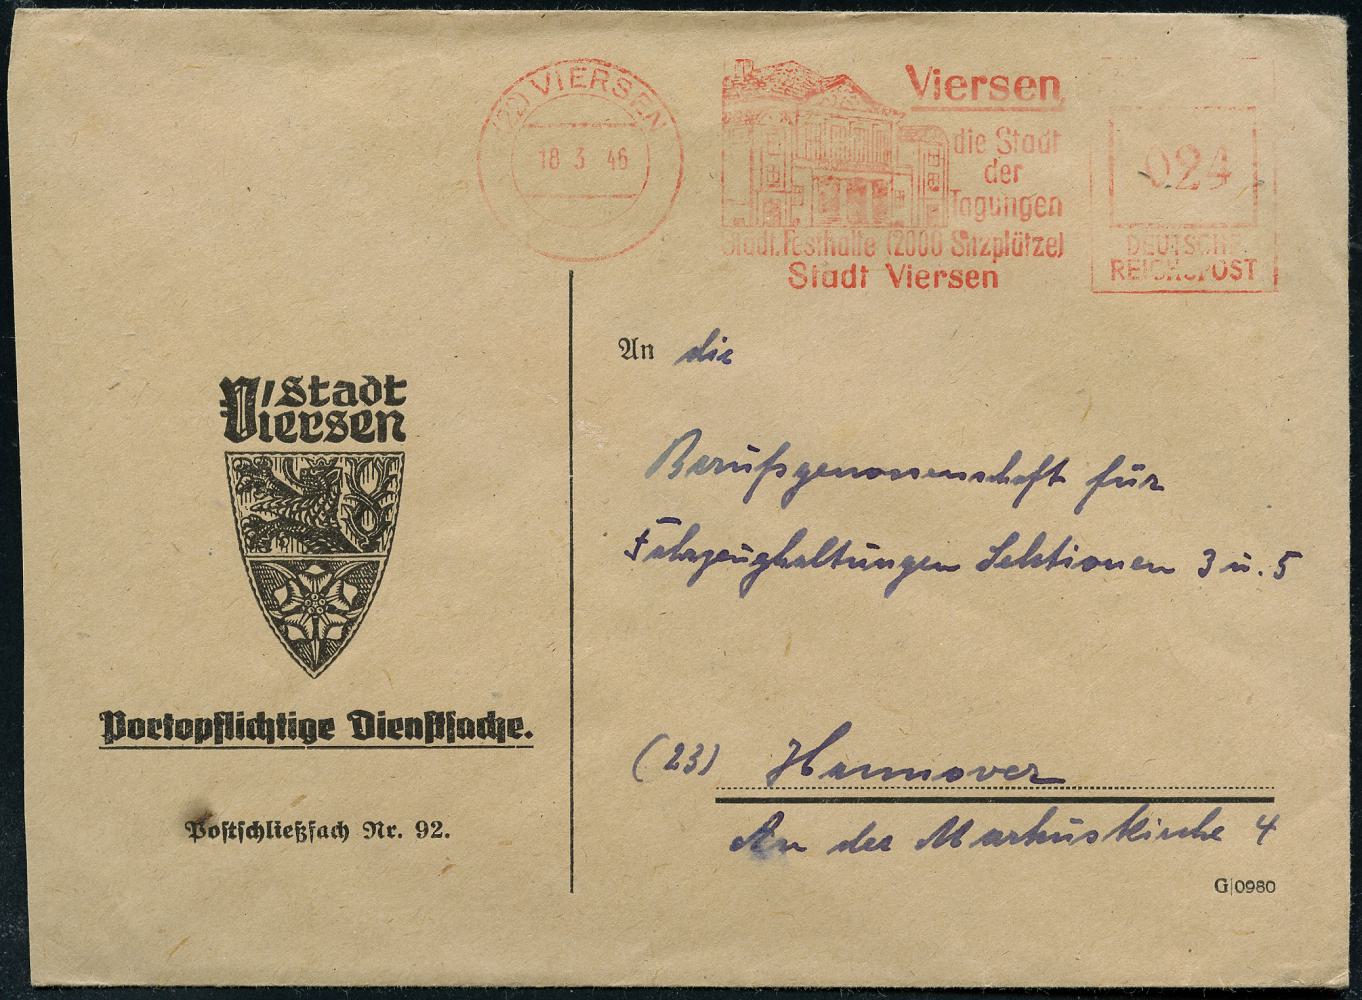 (22) VIERSEN
18 3 46
Viersen
die Stadt
der
Tagungen
Städt. Festhalle (2000 Sitzplätze)
Stadt Viersen
024
DEUTSCHE
REICHSPOST
Stadt
Viersen
Portopflichtige Dienstsache.
Postschließfach Nr. 92.
An die
Berufsgenossenschaft für
Fahrzeughaltungen Sektionen 3 u. 5
(23) Hannover
An der Markuskirche 4
G|0980